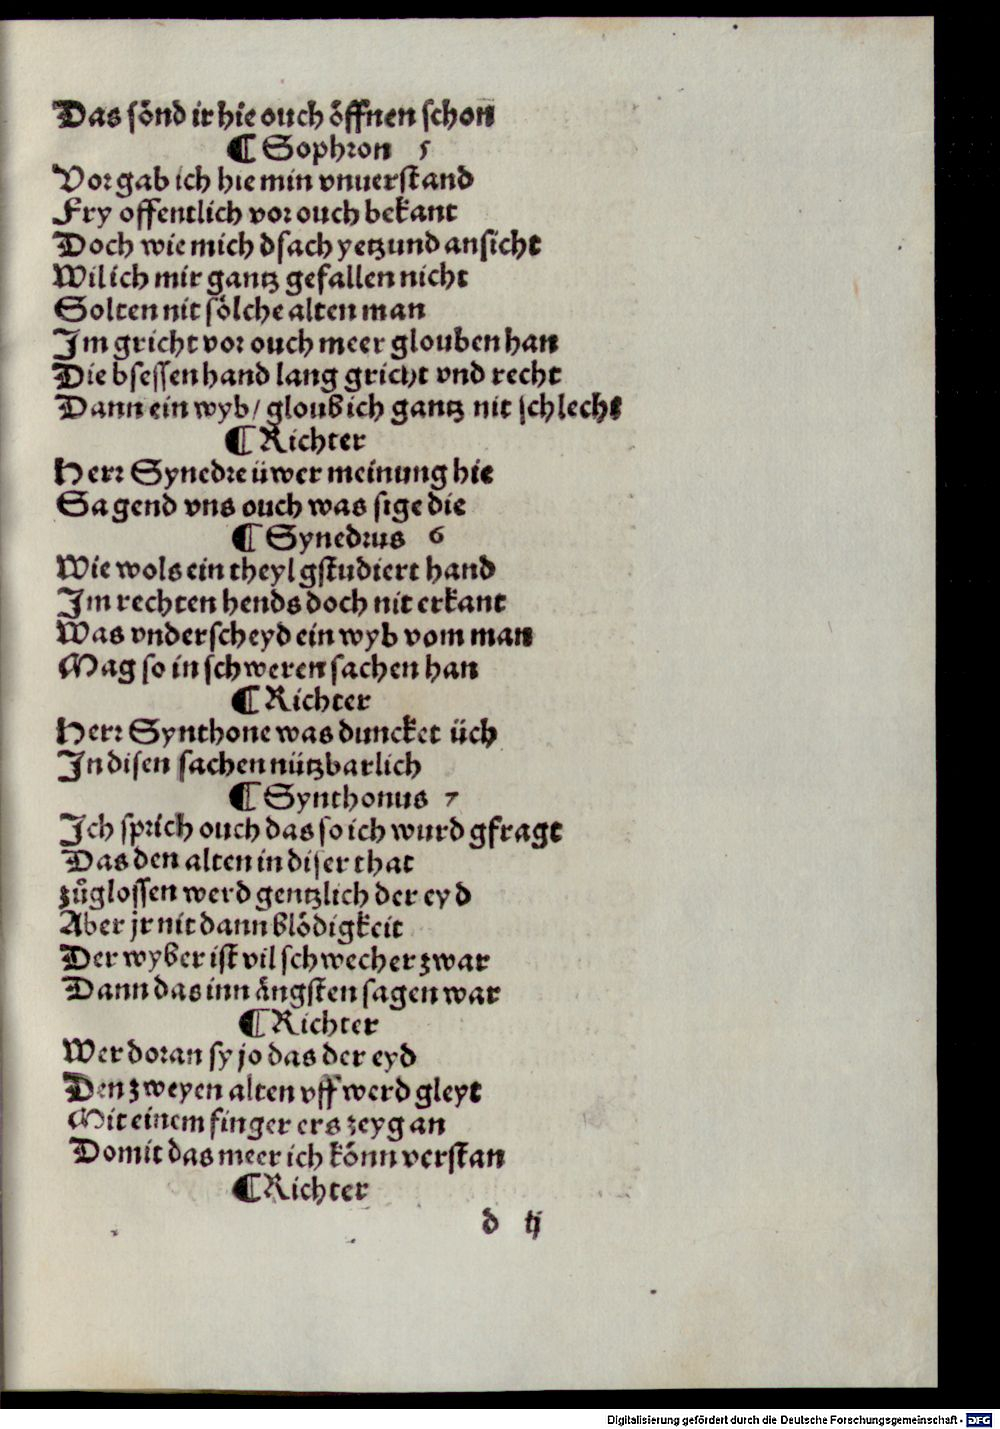 Das sönd ir hie ouch öffnen schon
¶ Sophron 5
Vor gab ich hie min vnuerstand
Fry offentlich vor ouch bekant
Doch wie mich dsach yetzund ansicht
Wil ich mir gantz gefallen nicht
Solten nit sölche alten man
Im gricht vor ouch meer glouben han
Die bsessen hand lang gricht vnd recht
Dann ein wyb / gloub ich gantz nit schlecht
¶ Richter
Herr Synedre üwer meinung hie
Sagend vns ouch was sige die
¶ Synedrus 6
Wie wols ein theyl gstudiert hand
Im rechten hends doch nit erkant
Was vnderscheyd ein wyb vom man
Mag so in schweren sachen han
¶ Richter
Herr Synthone was duncket üch
In disen sachen nützbarlich
¶ Synthonus 7
Ich sprich ouch das so ich wurd gfragt
Das den alten in diser that
zůglossen werd gentzlich der eyd
Aber jr nit dann blödigkeit
Der wyber ist vil schwecher zwar
Dann das inn ängsten sagen war
¶ Richter
Wer doran sy jo das der eyd
Den zweyen alten vff werd gleyt
Mit einem finger ers zeyg an
Domit das meer ich könn verstan
¶ Richter
d ij
Digitalisierung gefördert durch die Deutsche Forschungsgemeinschaft - DFG